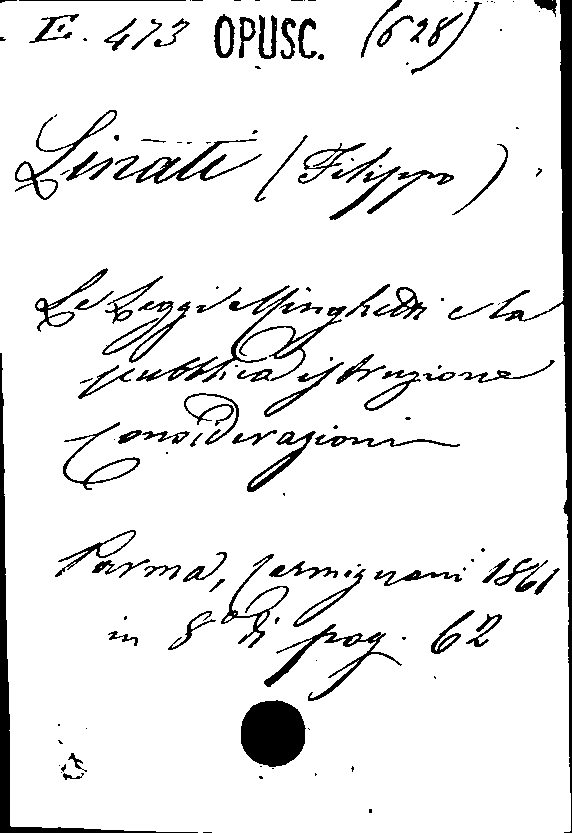 E. 473 OPUSC. (628)
Linati (Filippo)
Le Leggi Minghetti e la
pubblica istruzione
Considerazioni
Parma, Carmignani 1861
in 8º di pag. 62